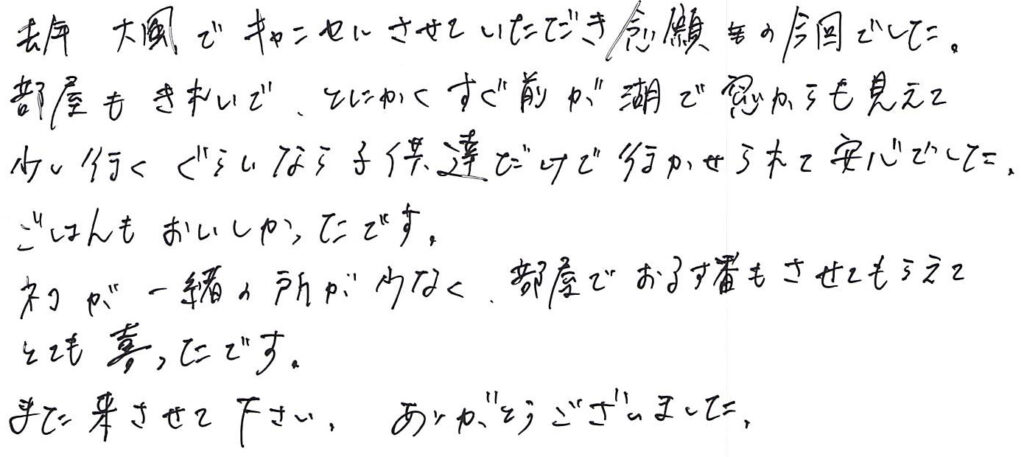 去年 大風でキャンセルさせていただき念願の今回でした。
部屋もきれいで、とにかくすぐ前が湖で窓からも見えて
少し行くぐらいなら子供達だけで行かせられて安心でした。
ごはんもおいしかったです。
ネコが一緒の所が少なく、部屋でおるす番もさせてもらえて
とても喜ったです。
また来させて下さい。 ありがとうございました。